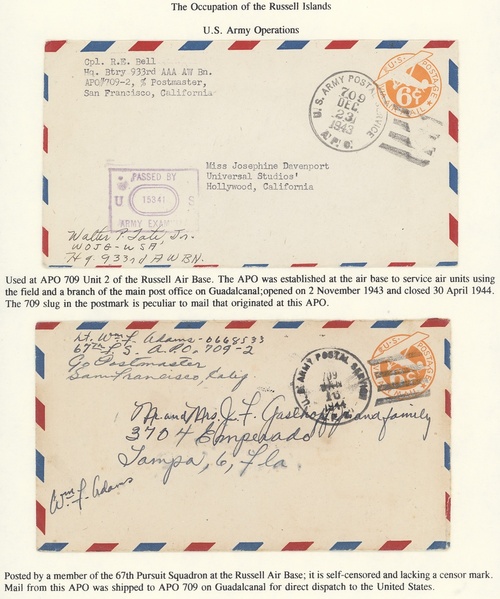 The Occupation of the Russell Islands
U.S. Army Operations
Cpl. R.E. Bell
Hq. Btry 933rd AAA AW Bn.
APO#709-2, % Postmaster,
San Francisco, California
U.S. ARMY POSTAL SERVICE
709
DEC
23
1943
A.P.O.
U.S. POSTAGE
6¢
AIR MAIL
Miss Josephine Davenport
Universal Studios'
Hollywood, California
PASSED BY
U 15341 S
ARMY EXAMINER
Walter P. Tate Jr.
WOJG-USA
Hq. 933rd AWBN.
Used at APO 709 Unit 2 of the Russell Air Base. The APO was established at the air base to service air units using
the field and a branch of the main post office on Guadalcanal;opened on 2 November 1943 and closed 30 April 1944.
The 709 slug in the postmark is peculiar to mail that originated at this APO.
Lt. Wm F. Adams-0668533
67th F.S. A.P.O. 709-2
c/o Postmaster
San Francisco, Calif
U.S. ARMY POSTAL SERVICE
709
1944
A.P.O.
U.S. POSTAGE
Mr and Mrs. J.F. and family
3704 Emperado
Tampa, 6, Fla.
Wm F. Adams
Posted by a member of the 67th Pursuit Squadron at the Russell Air Base; it is self-censored and lacking a censor mark.
Mail from this APO was shipped to APO 709 on Guadalcanal for direct dispatch to the United States.